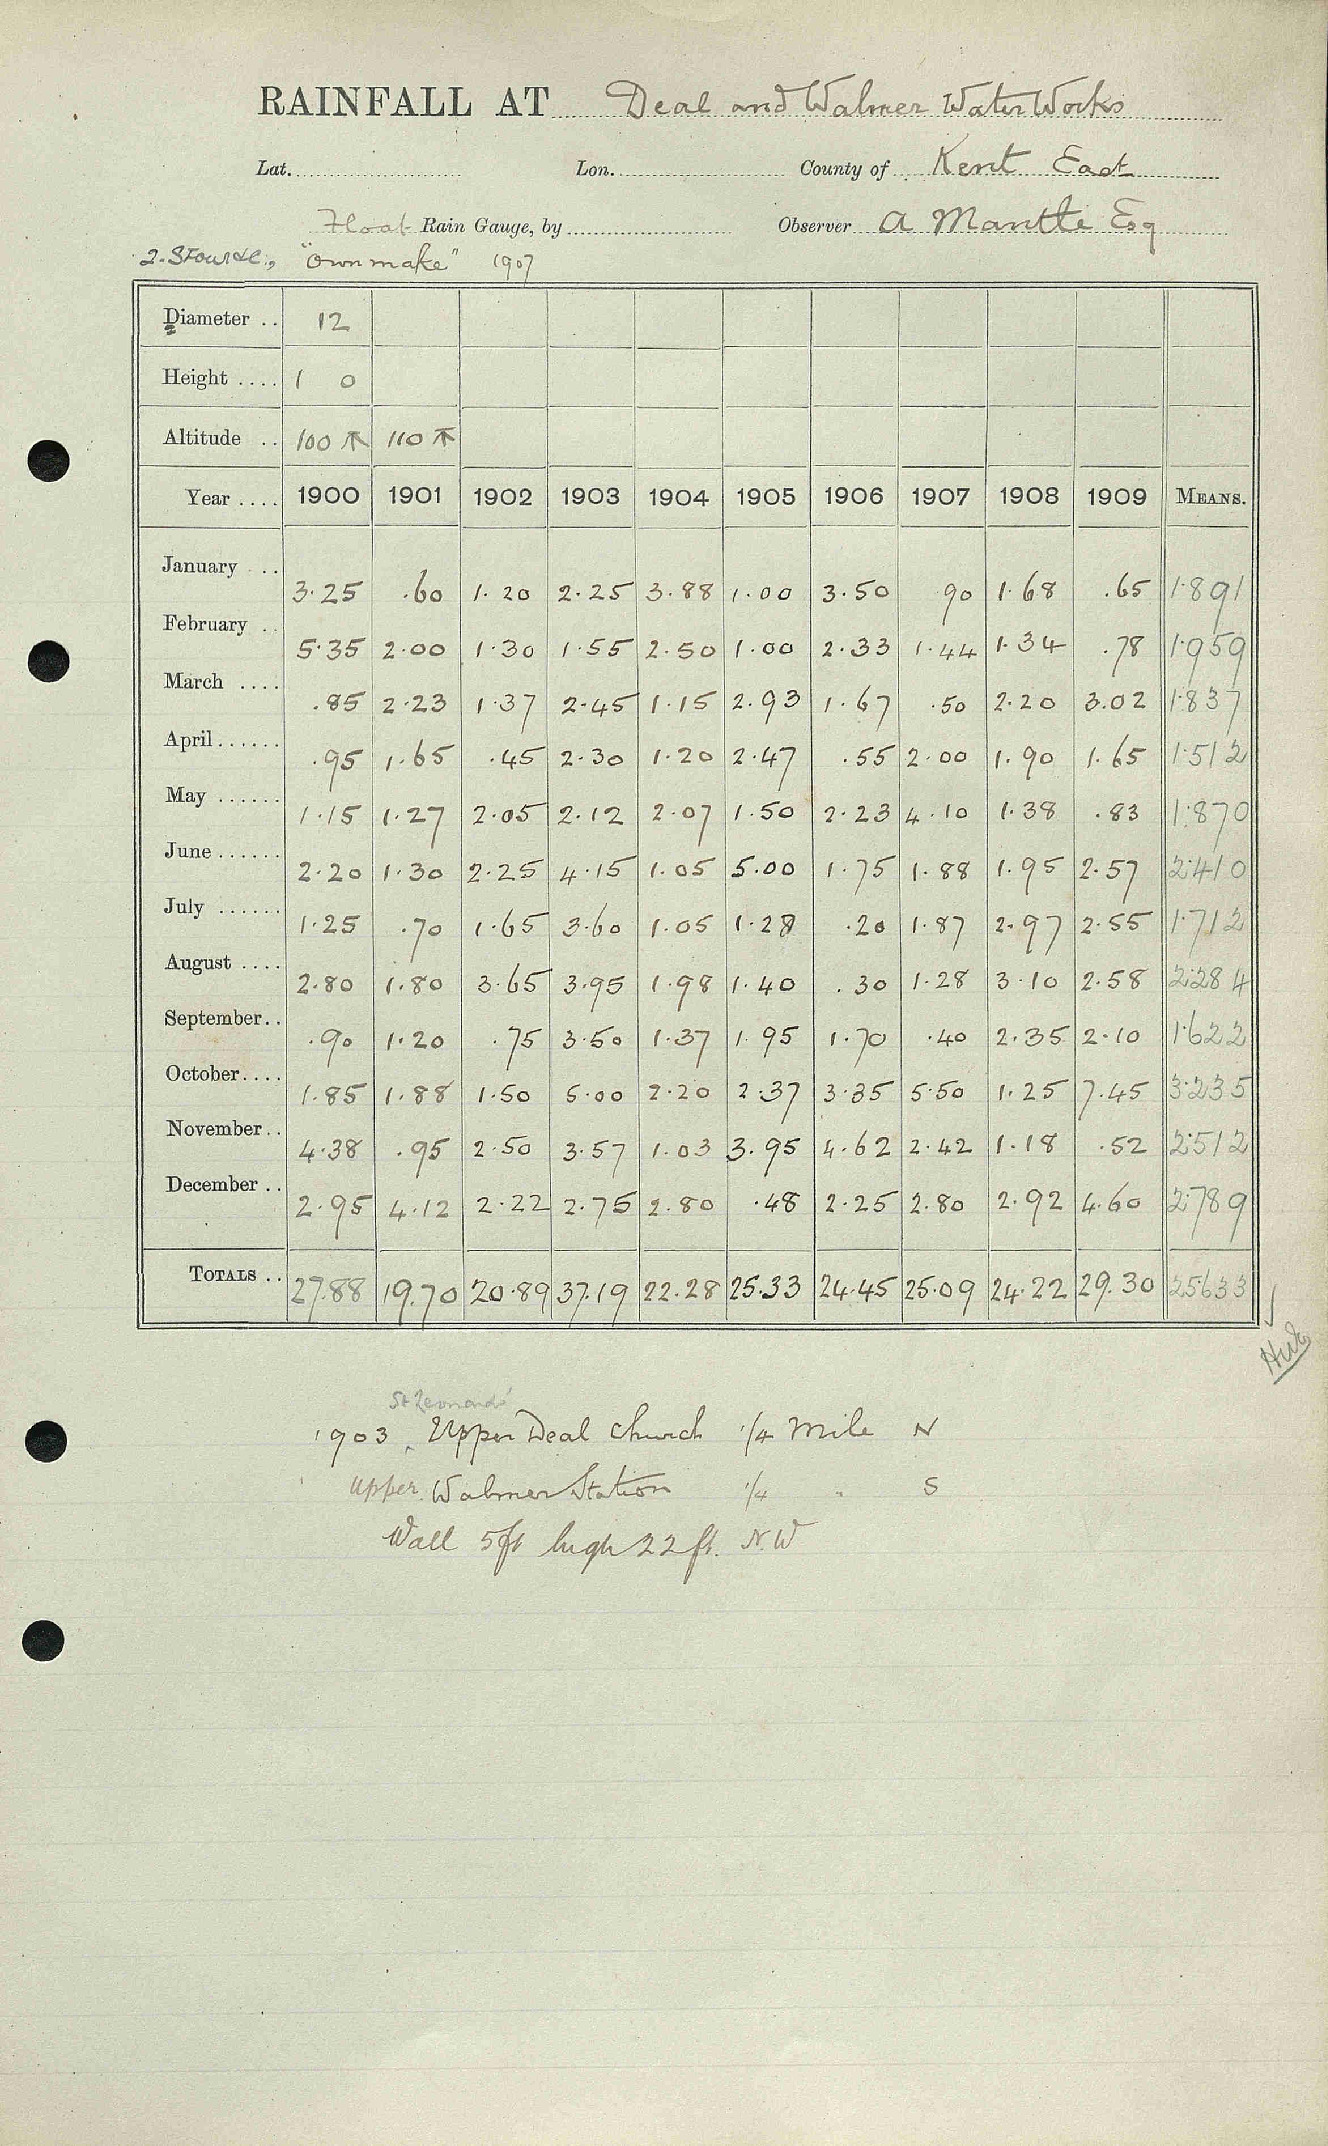 RAINFALL AT Deal and Walmer Water Works
Lat. Lon. County of Kent East
Float Rain Gauge, by Observer A Mantle Esq
2. Stour &c., "Own make" 1907
Diameter .. 12
Height .... 1 0
Altitude .. 100 110
Year .... 1900 1901 1902 1903 1904 1905 1906 1907 1908 1909 MEANS.
January .. 3.25 .60 1.20 2.25 3.88 1.00 3.50 .90 1.68 .65 1.891
February .. 5.35 2.00 1.30 1.55 2.50 1.00 2.33 1.44 1.34 .78 1.959
March .... .85 2.23 1.37 2.45 1.15 2.93 1.67 .50 2.20 3.02 1.837
April...... .95 1.65 .45 2.30 1.20 2.47 .55 2.00 1.90 1.65 1.512
May ...... 1.15 1.27 2.05 2.12 2.07 1.50 2.23 4.10 1.38 .83 1.870
June...... 2.20 1.30 2.25 4.15 1.05 5.00 1.75 1.88 1.95 2.57 2.410
July ...... 1.25 .70 1.65 3.60 1.05 1.28 .20 1.87 2.97 2.55 1.712
August .... 2.80 1.80 3.65 3.95 1.98 1.40 .30 1.28 3.10 2.58 2.284
September.. .90 1.20 .75 3.50 1.37 1.95 1.70 .40 2.35 2.10 1.622
October.... 1.85 1.88 1.50 5.00 2.20 2.37 3.35 5.50 1.25 7.45 3.235
November.. 4.38 .95 2.50 3.57 1.03 3.95 4.62 2.42 1.18 .52 2.512
December .. 2.95 4.12 2.22 2.75 2.80 .48 2.25 2.80 2.92 4.60 2.789
TOTALS .. 27.88 19.70 20.89 37.19 22.28 25.33 24.45 25.09 24.22 29.30 25.633
St Leonards'
1903, Upper Deal Church 1/4 Mile N
Upper Walmer Station 1/4 " S
Wall 5ft high 22 ft. N.W